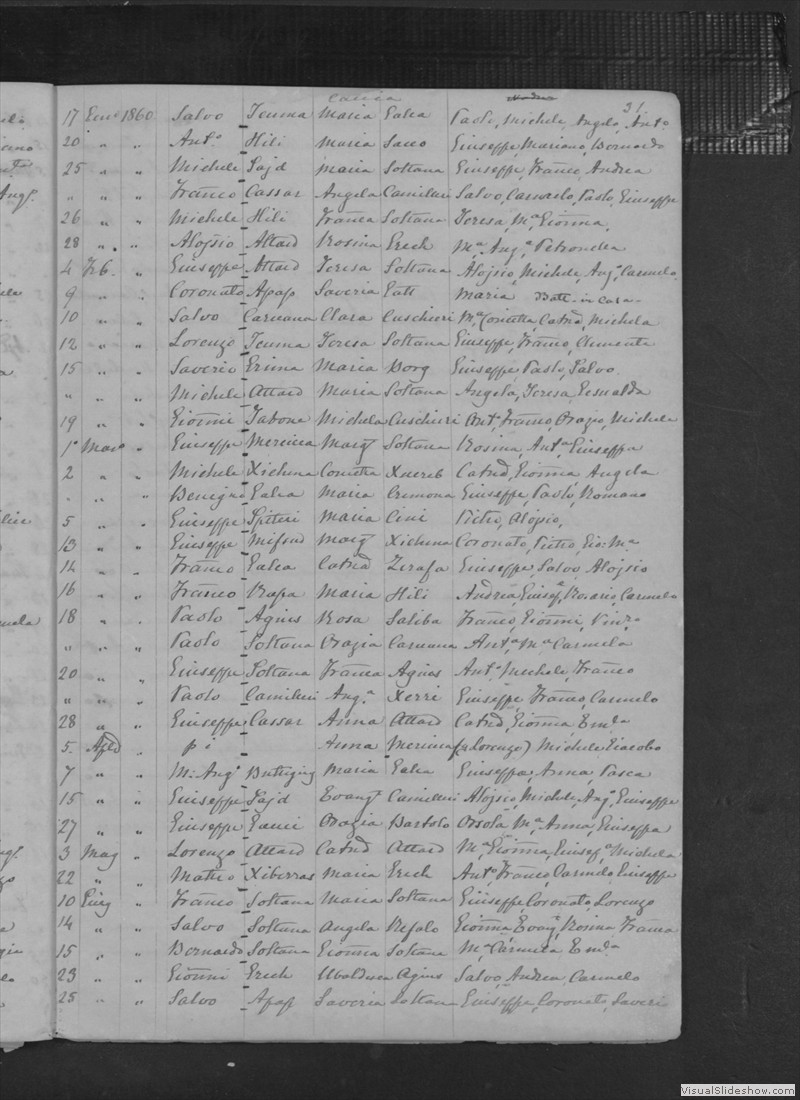 31
17 Genº 1860 Salvo Teuma Maria Galea Paolo, Michele, Angelo, Antº
20 " " Antº Hili Maria Sacco Giuseppe, Mariano, Bernardo
25 " " Michele Sajd Maria Soltana Giuseppe, Franco, Andrea
" " " Franco Cassar Angela Camilleri Salvo, Carmelo, Paolo, Giuseppe
26 " " Michele Hili Franca Soltana Teresa, Mª Gionna,
28 " " Aloysio Attard Rosina Grech Mª Angª Petronella
4 Feb. " Giuseppe Attard Teresa Soltana Aloysio, Michele, Angº, Carmelo
9 " " Coronato Apap Saveria Maria Batt. in casa
10 " " Salvo Caruana Clara Cuschieri Mª Concetta, Catnª, Michela
12 " " Lorenzo Teuma Teresa Soltana Giuseppe, Franco, Clemente
15 " " Saverio Grima Maria Borg Giuseppe Paolo, Salvo
" " " Michele Attard Maria Soltana Angela, Teresa,
19 " " Gionni Tabone Michela Cuschieri Antº, Franco, Orazio, Michele
1º Marº " Giuseppe Mercieca Margª Soltana Rosina, Antª Giuseppa
2 " " Michele Xicluna Concetta Xuereb Catnª, Gionna, Angela
" " " Benigno Galea Maria Cremona Giuseppe, Paolo, Romano
5 " " Giuseppe Spiteri Maria Cini Pietro, Aloysio,
13 " " Giuseppe Mifsud Margª Xicluna Coronato, Pietro, Gio: Mª
14 " " Franco Galea Catnª Zerafa Giuseppe, Salvo, Aloysio
16 " " Franco Rapa Maria Hili Andrea, Giusepª, Rosario, Carmelo
18 " " Paolo Agius Rosa Saliba Franco, Gionni, Vinzº
" " " Paolo Soltana Orazia Caruana Antª, Mª Carmela
20 " " Giuseppe Soltana Franca Agius Antº Michele, Franco
" " " Paolo Camilleri Angª Xerri Giuseppe, Franco, Carmelo
28 " " Giuseppe Cassar Anna Attard Catnª, Gionna, Emlª
5. Aple " p i Anna (Lorenzo) Michele Giacobo
7 " " M: Angº Buttigieg Maria Galea Giuseppa, Anna, Pasca
15 " " Giuseppe Sajd Evangª Camilleri Aloysio, Michele Angº, Giuseppe
27 " " Giuseppe Gauci Orazia Bartolo Orsola Mª Anna, Giuseppa
3 Magº " Lorenzo Attard Catnª Attard Mª Gionna, Giusepª Michela
22 " " Matteo Xiberras Maria Grech Antº, Franco, Carmelo Giuseppe
10 Giugº " Franco Soltana Maria Soltana Giuseppe, Coronato, Lorenzo
14 " " Salvo Soltana Angela Refalo Gionna Evangª, Rosina, Franca
15 " " Bernardo Soltana Gionna Soltana Mª Carmela Emlª
23 " " Gionni Grech Ubaldesca Agius Salvo, Andrea, Carmelo
25 " " Salvo Apap Saveria Soltana Giuseppe, Coronato, Saverio
VisualSlideshow.com